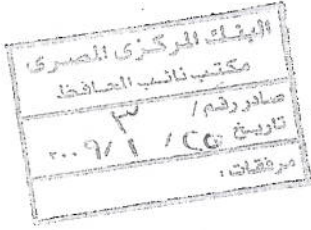 البنك المركزى المصرى
مكتب نائب المحافظ
صادر رقم / ٣
تاريخ ٢٥ / ١ / ٢٠٠٩
مرفقات :